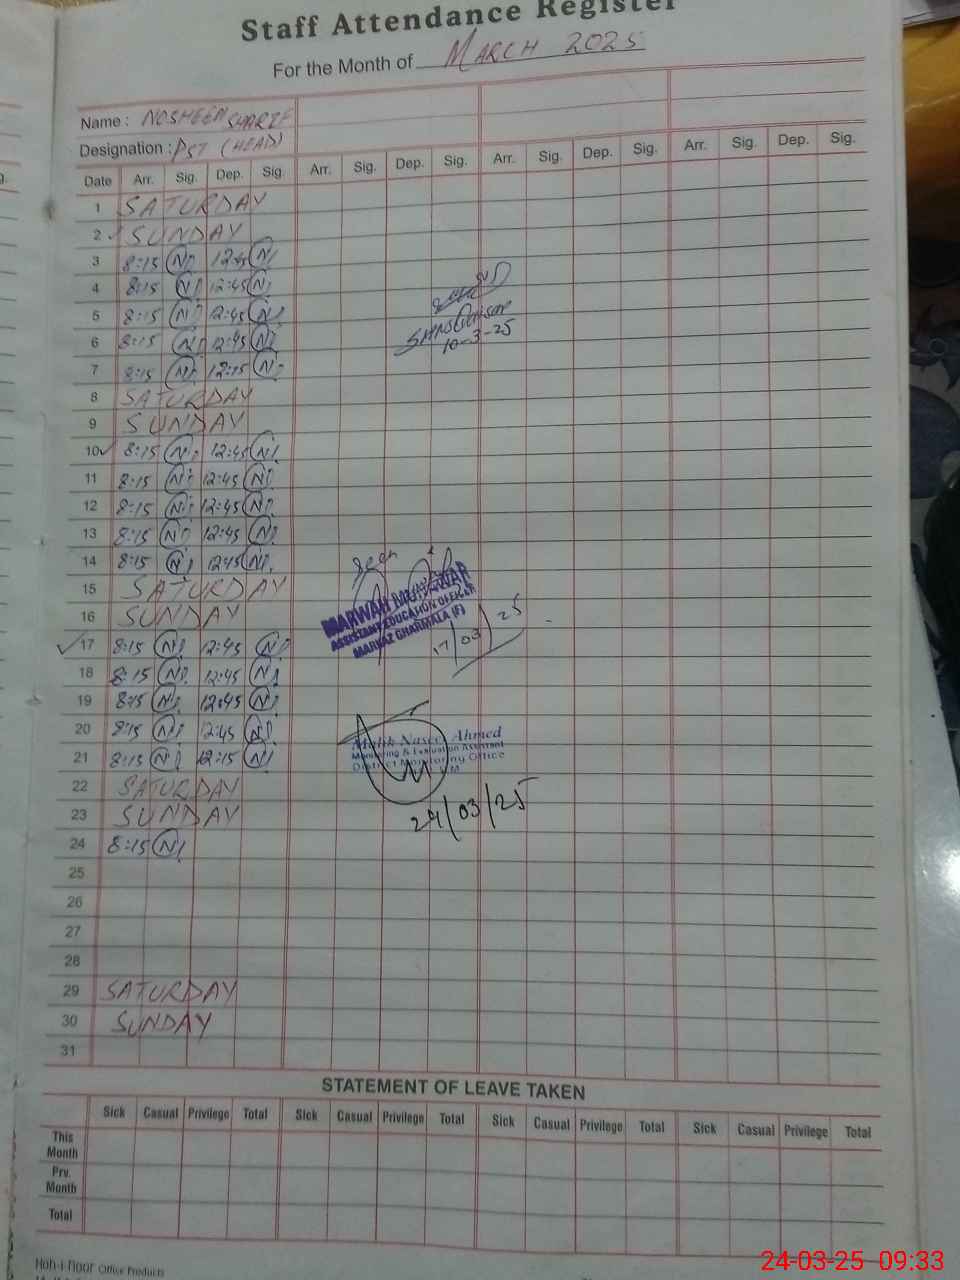 Staff Attendance Register
For the Month of MARCH 2025
Name : NOSHEEN SHARIF
Designation : PST (HEAD)
Date Arr. Sig. Dep. Sig. Arr. Sig. Dep. Sig. Arr. Sig. Dep. Sig. Arr. Sig. Dep. Sig.
1 SATURDAY
2 SUNDAY
3 8:15 N 12:45 N
4 8:15 N 12:45 N
5 8:15 N 12:45 N
6 8:15 N 12:45 N
10-3-25
7 8:15 N 12:15 N
8 SATURDAY
9 SUNDAY
10 8:15 N 12:45 N
11 8:15 N 12:45 N
12 8:15 N 12:45 N
13 8:15 N 12:45 N
14 8:15 N 12:45 N
Seen
15 SATURDAY
16 SUNDAY
MARWAH MUNAWAR
ASSISTANT EDUCATION OFFICER
MARKAZ GHARMALA (F)
17/03/25
17 8:15 N 12:45 N
18 8:15 N 12:45 N
19 8:15 N 12:45 N
20 8:15 N 12:45 N
21 8:15 N 12:15 N
Malik Naseer Ahmed
Monitoring & Evaluation Assistant
District Monitoring Office
22 SATURDAY
23 SUNDAY
24/03/25
24 8:15 N
25
26
27
28
29 SATURDAY
30 SUNDAY
31
STATEMENT OF LEAVE TAKEN
Sick Casual Privilege Total Sick Casual Privilege Total Sick Casual Privilege Total Sick Casual Privilege Total
This
Month
Prv.
Month
Total
Koh-i-Noor Office Products
24-03-25 09:33